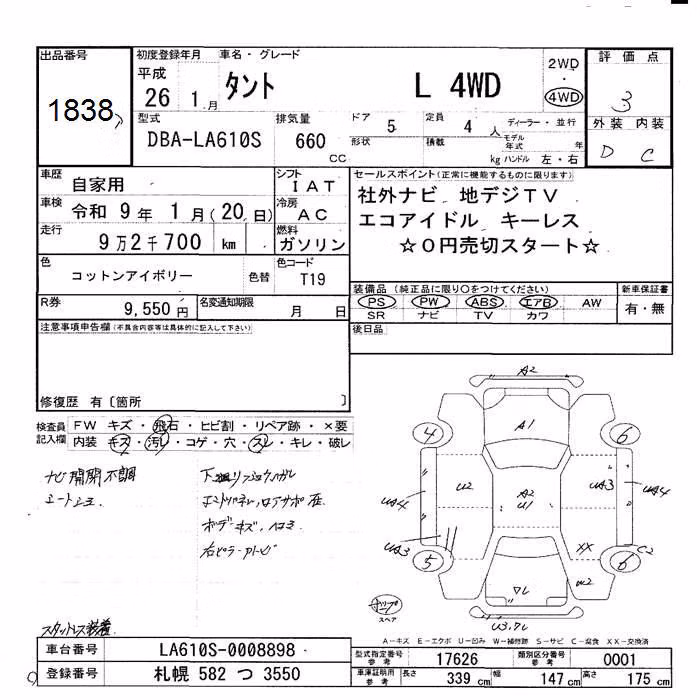 出品番号
1838
初度登録年月
平成
26 1 月
車名・グレード
タント L 4WD
2WD
・
4WD
評価点
3
外装 内装
D C
型式
DBA-LA610S
排気量
660
CC
ドア 5
定員 4 人
形状
積載 kg
ディーラー・並行
モデル年式 年
ハンドル 左・右
車歴 自家用
シフト IAT
車検 令和 9 年 1 月 (20 日)
冷房 AC
走行 9万2千700 km
燃料 ガソリン
色 コットンアイボリー 色替
色コード T19
R券 9,550 円
名変通知期限 月 日
セールスポイント(正常に機能するものに限ります)
社外ナビ 地デジTV
エコアイドル キーレス
☆0円売切スタート☆
装備品 (純正品に限り○をつけてください)
PS PW ABS エアB AW
SR ナビ TV カワ
新車保証書
有・無
後日品
注意事項申告欄(不具合内容等は具体的に記入して下さい)
修復歴 有〔箇所 〕
検査員記入欄
FW キズ・飛石・ヒビ割・リペア跡・×要
内装 キズ・汚レ・コゲ・穴・スレ・キレ・破レ
ナビ開閉不調
シートシミ
ボデーキズ、ヘコミ
スタットレス装着
A2
A1
4
6
U2
A2
U1
UA3
UA4
UA4
UA3
5
XX
C2
6
W2
スペア
A-キズ E-エクボ U-凹み W-補修跡 S-サビ C-腐食 XX-交換済
車台番号 LA610S-0008898
登録番号 札幌 582 つ 3550
型式指定番号 参考 17626
類別区分番号 参考 0001
車庫証明用 参考 長さ 339 cm 幅 147 cm 高さ 175 cm